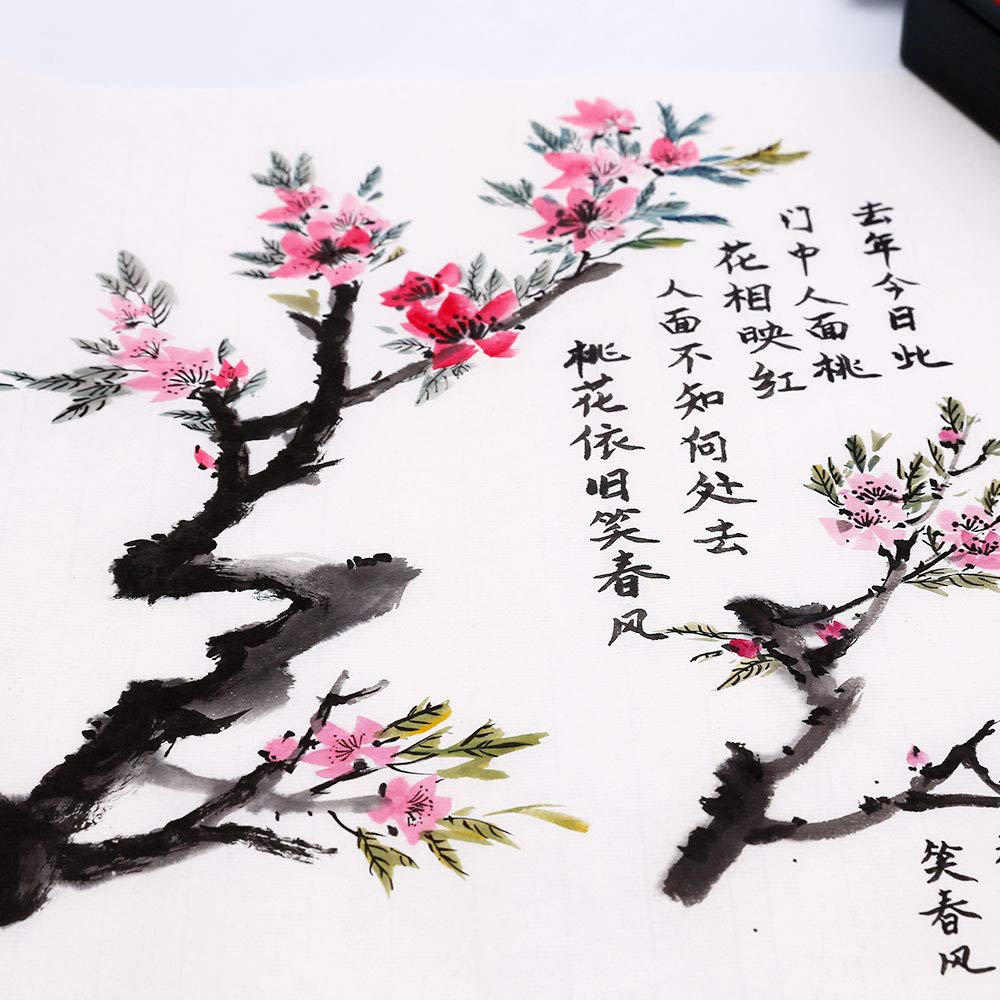 去年今日此
门中人面桃
花相映红
人面不知何处去
桃花依旧笑春风
笑春风